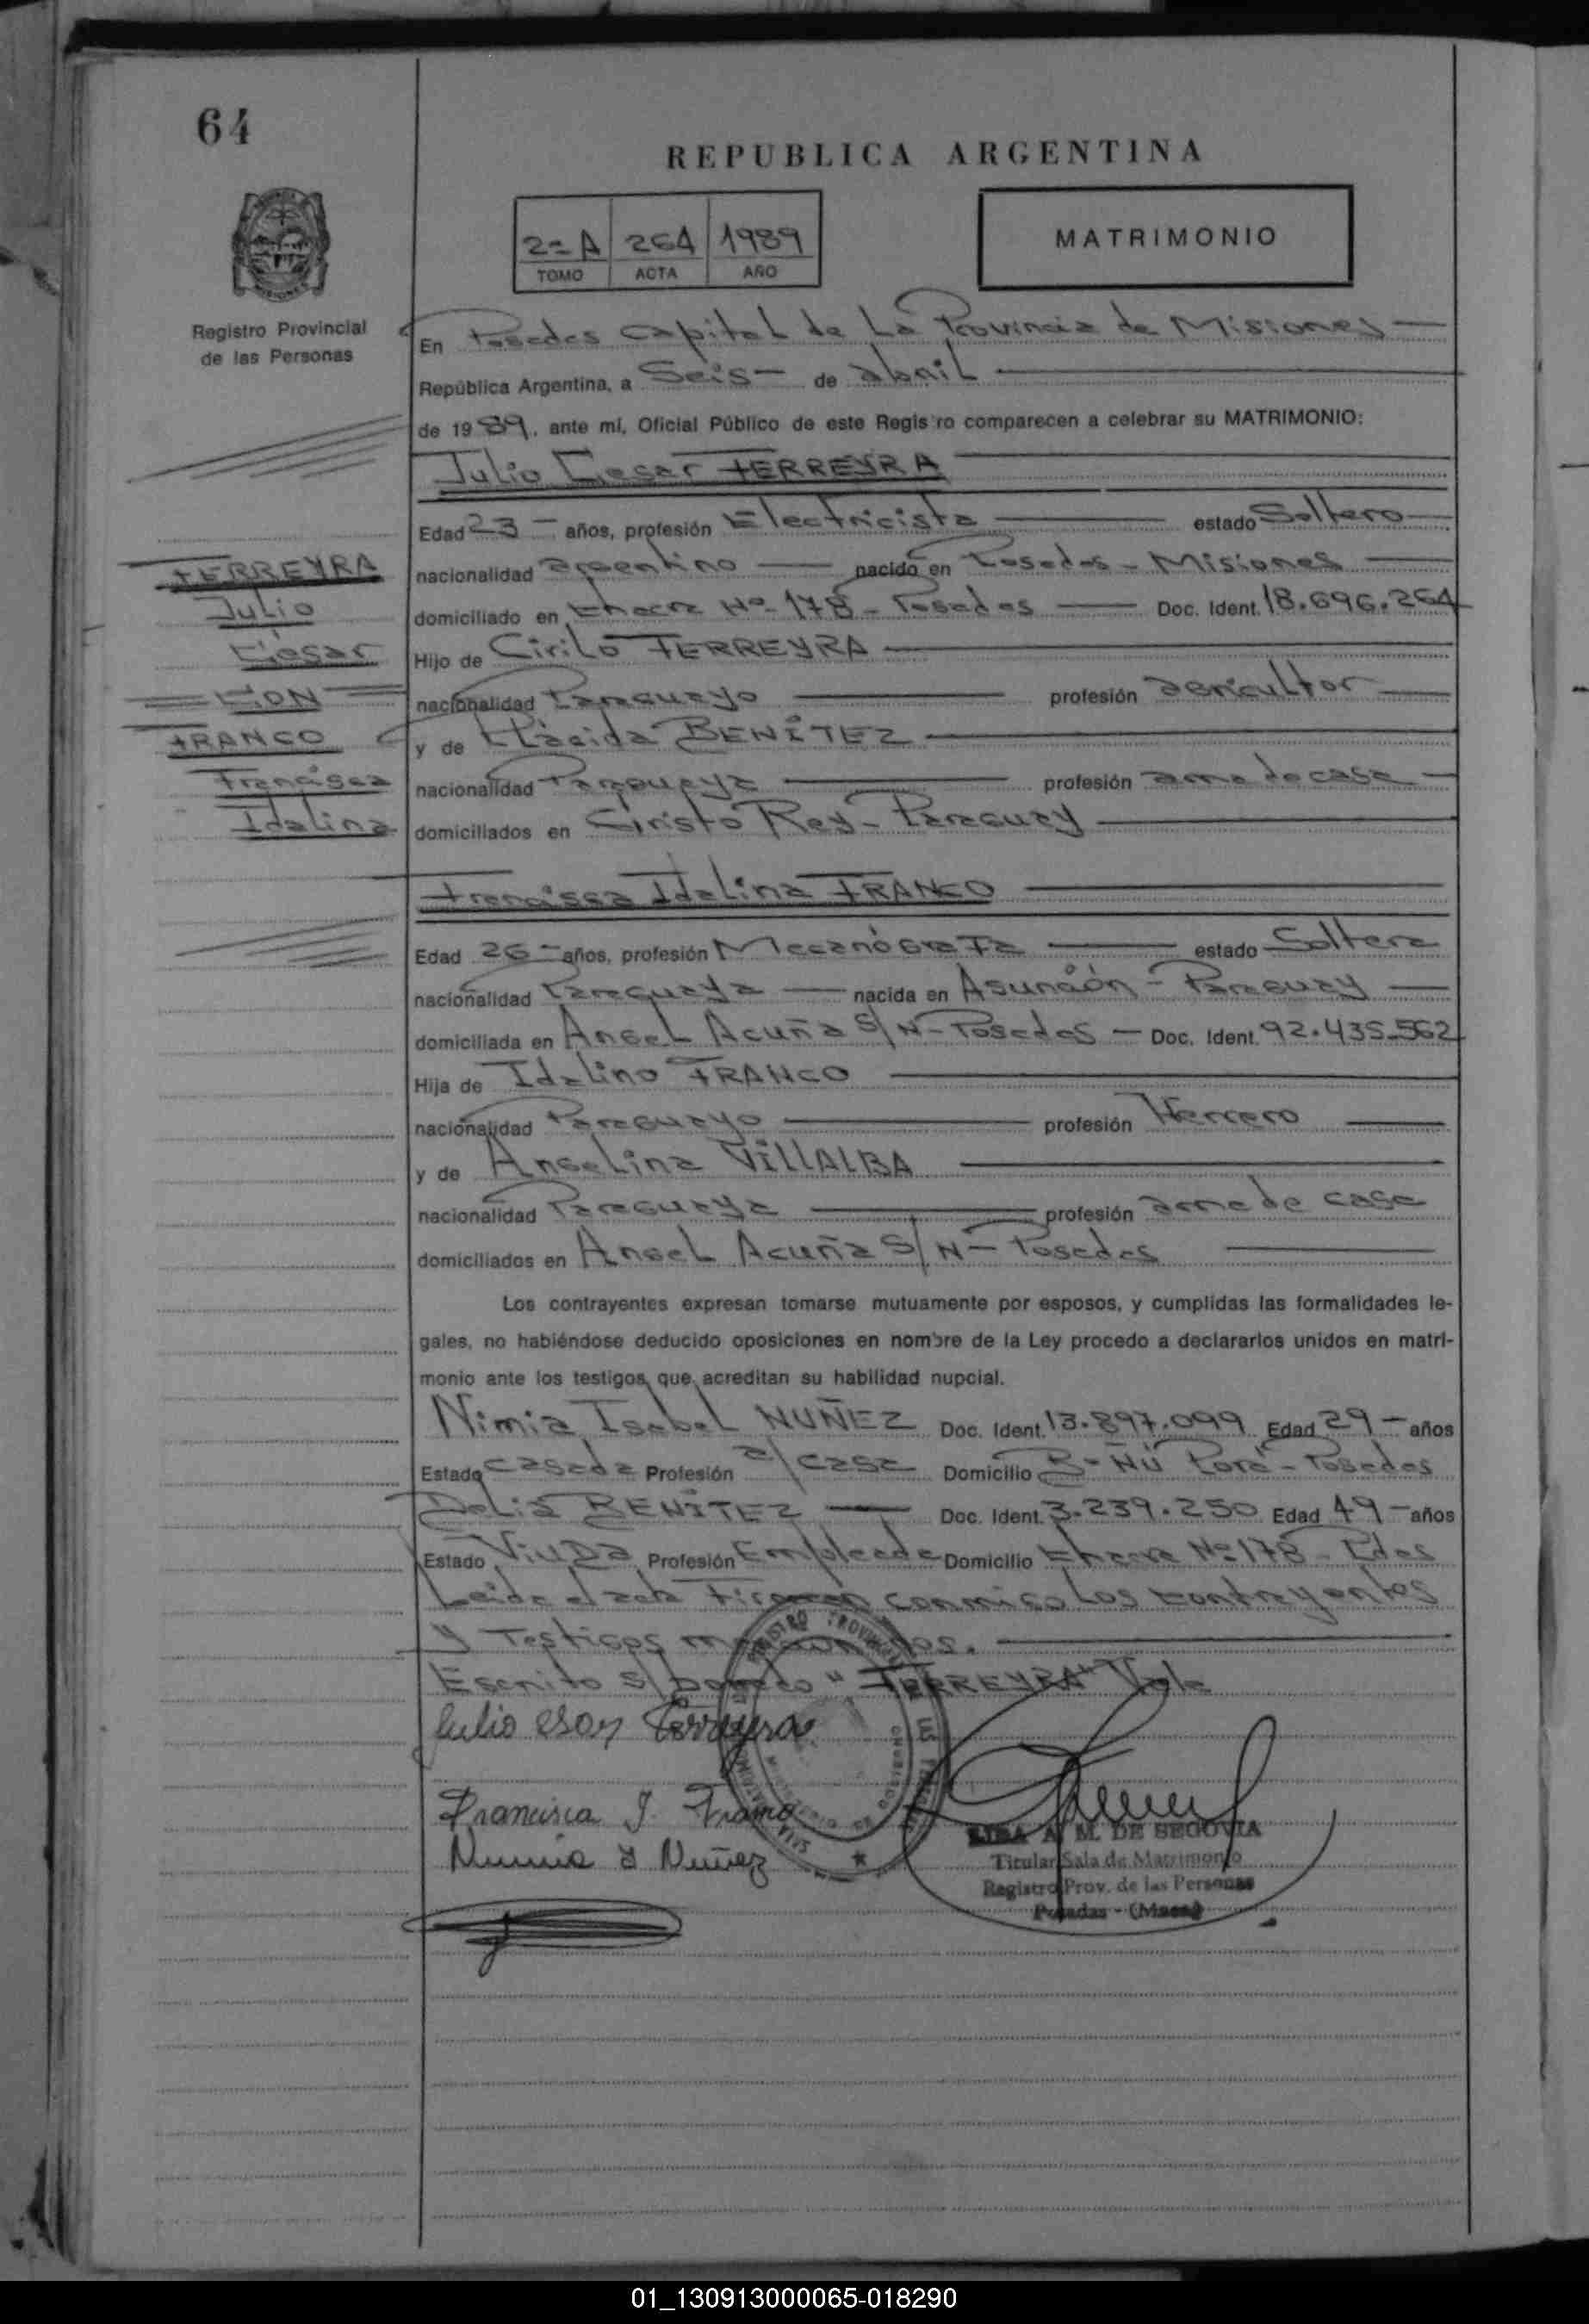 64
REPUBLICA ARGENTINA
2=A 264 1989
TOMO ACTA AÑO
MATRIMONIO
Registro Provincial
de las Personas
En Posadas Capital de La Provincia de Misiones
República Argentina, a Seis de abril
de 1989, ante mí, Oficial Público de este Registro comparecen a celebrar su MATRIMONIO:
Julio Cesar FERREYRA
Edad 23 años, profesión Electricista estado Soltero
nacionalidad argentino nacido en Posadas - Misiones
domiciliado en Chacra Nº 178 - Posadas Doc. Ident. 18.696.264
Hijo de Cirilo FERREYRA
nacionalidad Paraguayo profesión agricultor
y de Plácida BENÍTEZ
nacionalidad Paraguaya profesión ama de casa
domiciliados en Cristo Rey - Paraguay
FERREYRA
Julio
César
CON
FRANCO
Francisca
Idalina
Francisca Idalina FRANCO
Edad 26 años, profesión Mecanógrafa estado Soltera
nacionalidad Paraguaya nacida en Asunción - Paraguay
domiciliada en Angel Acuña S/N - Posadas - Doc. Ident. 92.435.562
Hija de Idalino FRANCO
nacionalidad Paraguayo profesión Herrero
y de Angelina VILLALBA
nacionalidad Paraguaya profesión ama de casa
domiciliados en Angel Acuña S/N - Posadas
Los contrayentes expresan tomarse mutuamente por esposos, y cumplidas las formalidades le-
gales, no habiéndose deducido oposiciones en nombre de la Ley procedo a declararlos unidos en matri-
monio ante los testigos que acreditan su habilidad nupcial.
Nimia Isabel NUÑEZ Doc. Ident. 13.897.099 Edad 29 años
Estado Casada Profesión a/casa Domicilio Bº Ñú Porá - Posadas
Delia BENITEZ Doc. Ident. 3.239.250 Edad 49 años
Estado Viuda Profesión Empleada Domicilio Chacra Nº 178 - Pdas
Leida el acta Firman conmigo Los contrayentes
y Testigos
Escrito s/borrado "FERREYRA" Vale
Julio Cesar Ferreyra
Francisca I. Franco
Nimia I Nuñez
A. M. DE SEGOVIA
Titular Sala de Matrimonio
Registro Prov. de las Personas
Posadas - (Mnes)
01_130913000065-018290